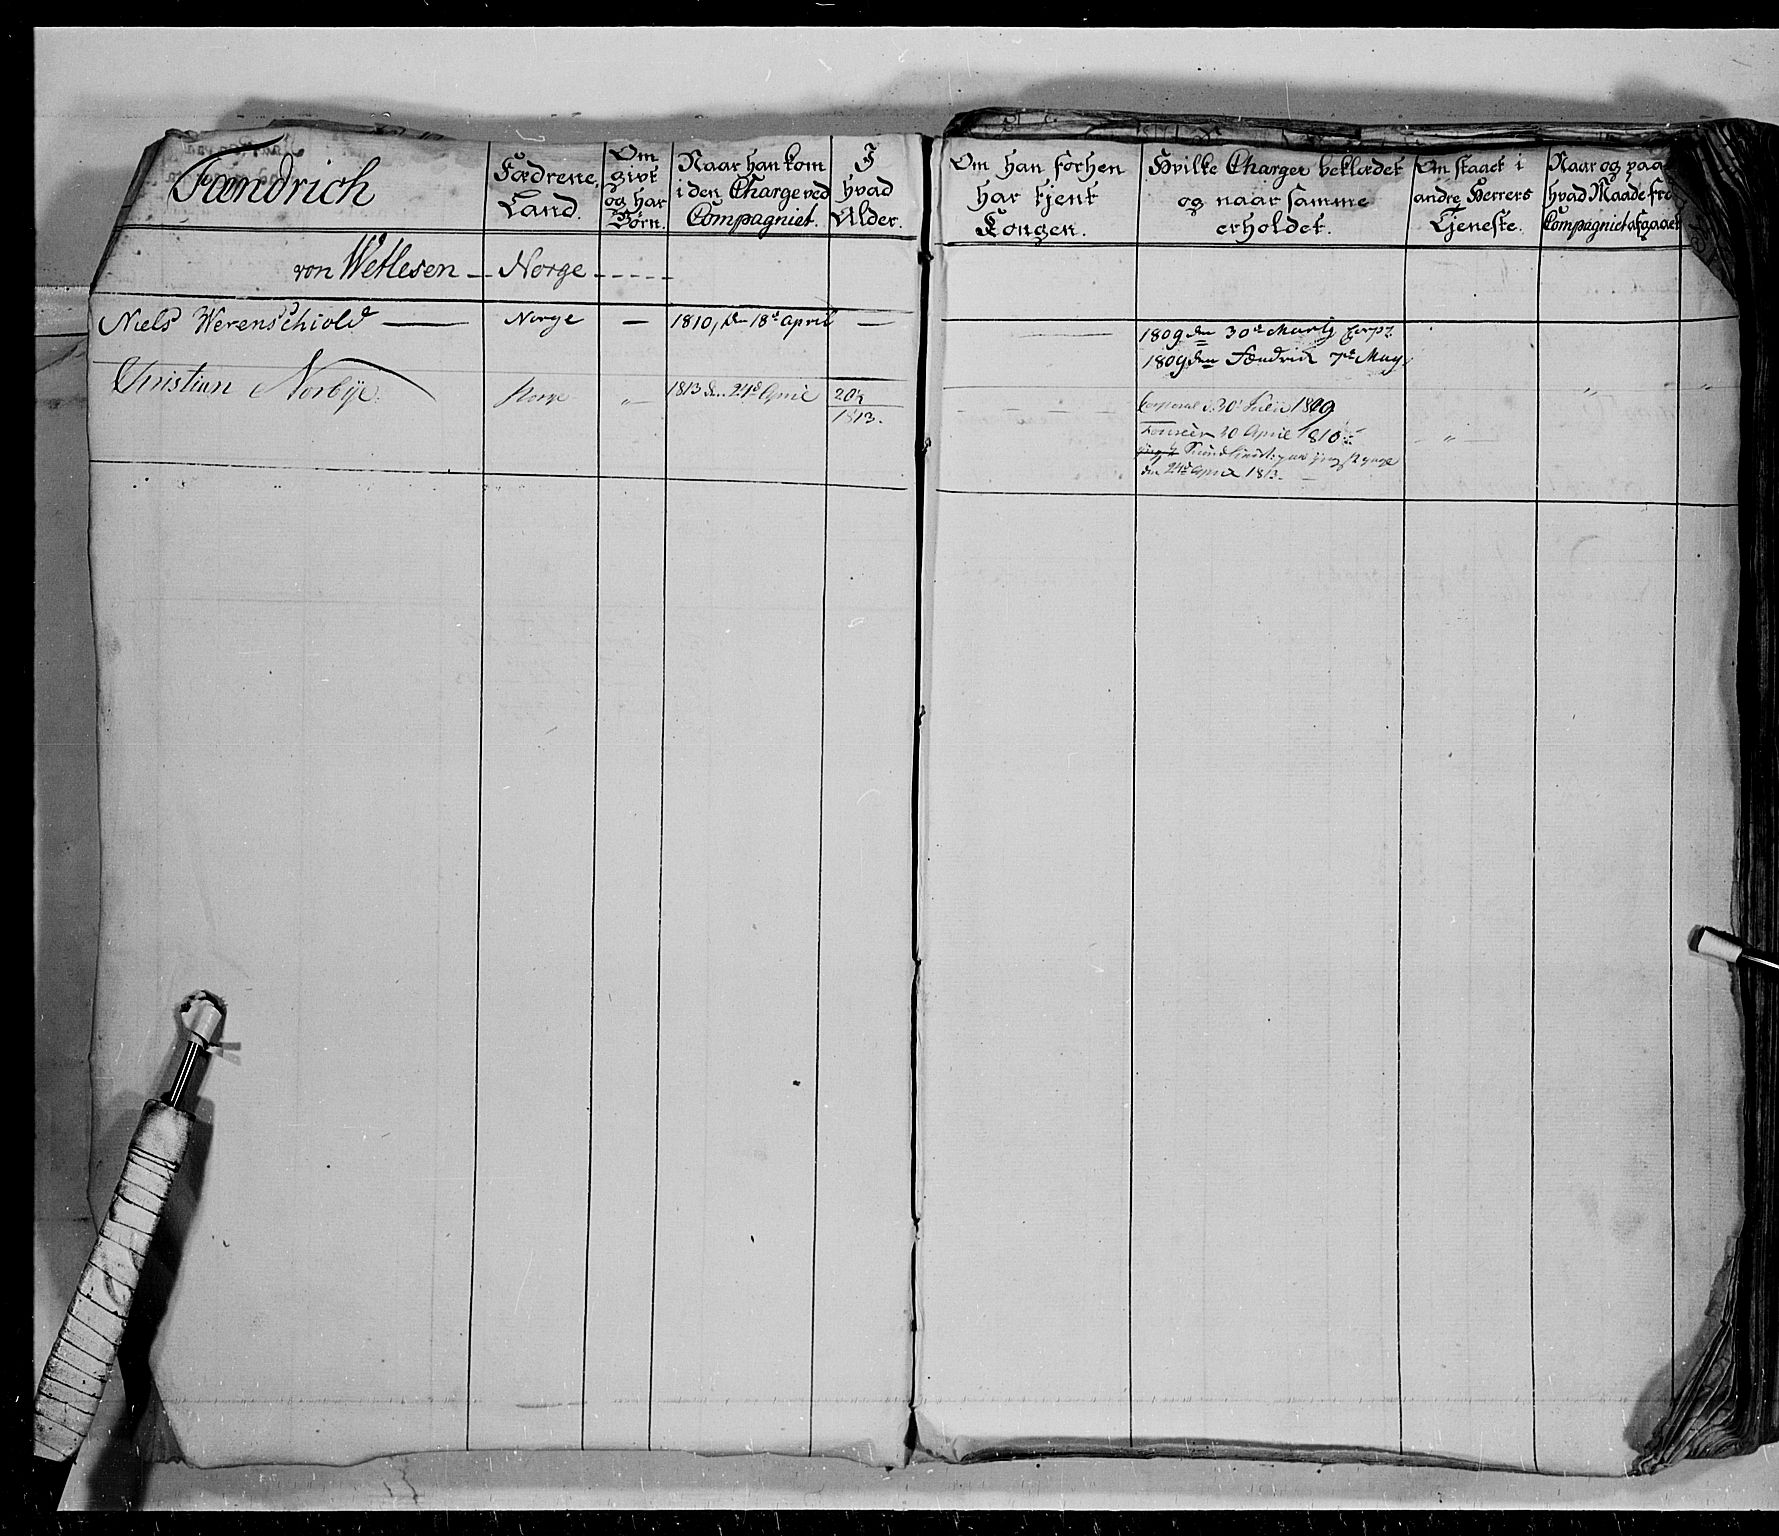 Fændrich
Fædrene
Land.
Om
givt
og har
Børn.
Naar han kom
i den Charge ved
Compagniet.
I
hvad
Alder.
Om han forhen
har tjent
Kongen.
Hvilke Charger beklædet
og naar samme
erholdet.
Om staaet i
andre Herrers
Tjeneste.
Naar og paa
hvad Maade fra
Compagniet afgaaet
von Wetlesen - - Norge - - - - -
Niels Werenschiold — Norge — 1810, den 18de April —
1809 den 30te Martij Corp:
1809 den Fændrich 7de May,
Christian Norbye. Norge „ 1813 den 24de April 20¾
1813.
Corporal d. 30' 1809
Foureer 30 April 1810
den 24de April 1813.